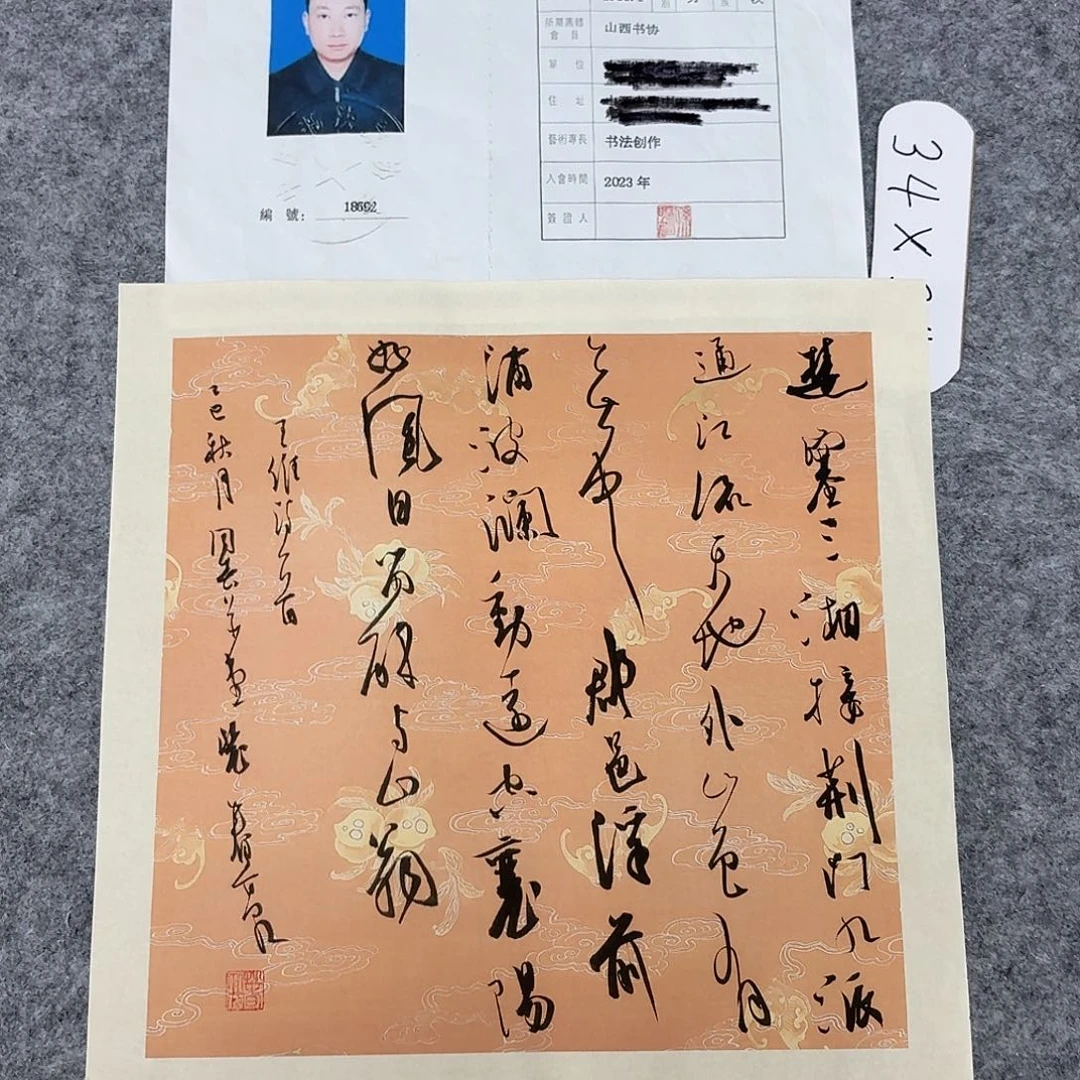 所屬團體
會 員 山西书协
單 位
住 址
藝術專長 书法创作
入會時間 2023 年
簽 證 人
編 號:
34×
楚塞三湘接荆门九派
通江流天地外山色有
無中郡邑浮前
浦波瀾動遠空襄陽
好風日留醉与山翁
王維詩一首
乙巳秋月